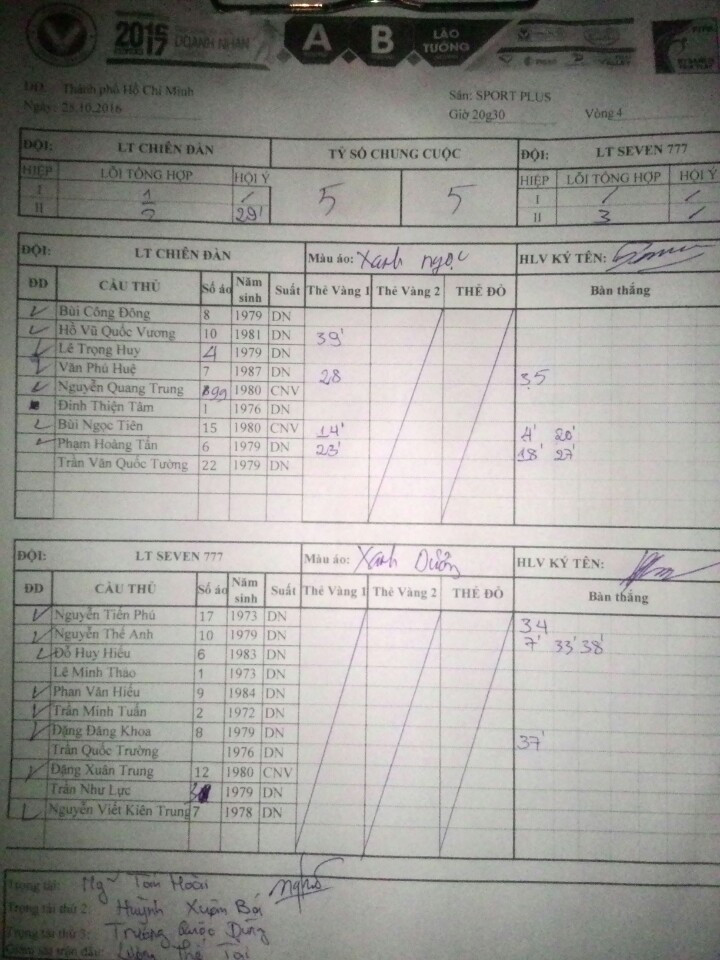 2016
2017 DOANH NHÂN A B LÃO TƯỚNG
DD: Thành phố Hồ Chí Minh Sân: SPORT PLUS
Ngày: 28.10.2016 Giờ 20g30 Vòng 4
ĐỘI: LT CHIÊN ĐÀN TỶ SỐ CHUNG CUỘC ĐỘI: LT SEVEN 777
HIỆP LỖI TỔNG HỢP HỘI Ý 5 5 HIỆP LỖI TỔNG HỢP HỘI Ý
I 1 / I / /
II 2 29' II 3 /
ĐỘI: LT CHIÊN ĐÀN Màu áo: Xanh ngọc HLV KÝ TÊN:
ĐD CẦU THỦ Số áo Năm sinh Suất Thẻ Vàng 1 Thẻ Vàng 2 THẺ ĐỎ Bàn thắng
Bùi Công Đông 8 1979 DN
Hồ Vũ Quốc Vương 10 1981 DN 39'
Lê Trọng Huy 4 1979 DN
Văn Phú Huệ 7 1987 DN 28 35
Nguyễn Quang Trung 1980 CNV
Đinh Thiện Tâm 1 1976 DN
Bùi Ngọc Tiên 15 1980 CNV 14' 4' 20'
Phạm Hoàng Tấn 6 1979 DN 23' 18' 27'
Trần Văn Quốc Tường 22 1979 DN
ĐỘI: LT SEVEN 777 Màu áo: Xanh Dương HLV KÝ TÊN:
ĐD CẦU THỦ Số áo Năm sinh Suất Thẻ Vàng 1 Thẻ Vàng 2 THẺ ĐỎ Bàn thắng
Nguyễn Tiến Phú 17 1973 DN 34
Nguyễn Thế Anh 10 1979 DN 7' 33' 38'
Đỗ Huy Hiếu 6 1983 DN
Lê Minh Thảo 1 1973 DN
Phan Văn Hiếu 9 1984 DN
Trần Minh Tuấn 2 1972 DN
Đặng Đăng Khoa 8 1979 DN 37'
Trần Quốc Trường 1976 DN
Đặng Xuân Trung 12 1980 CNV
Trần Như Lực 1979 DN
Nguyễn Viết Kiên Trung 7 1978 DN
Trọng tài: Ng~ Tấn Hoài
Trọng tài thứ 2: Huỳnh Xuân Bái
Trọng tài thứ 3: Trương Quốc Dũng
Giám sát trận đấu: Lương Thế Tài